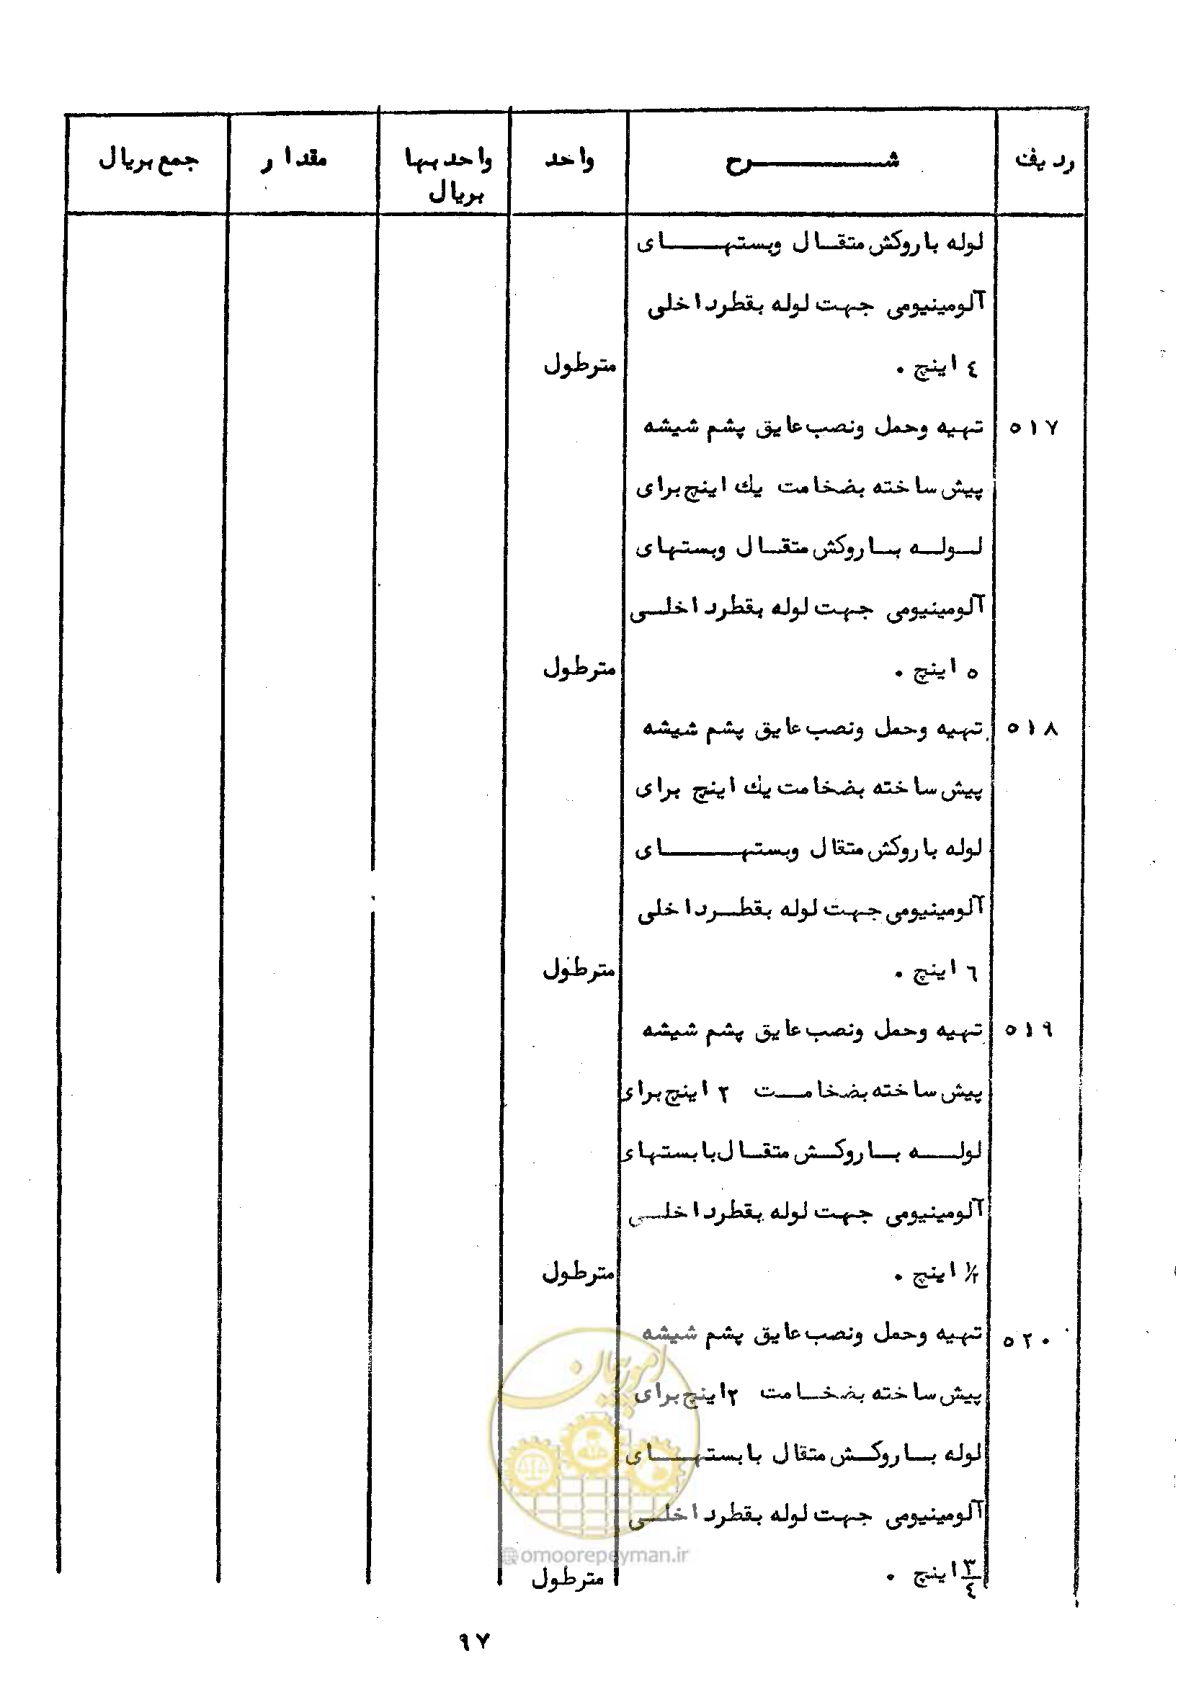 ردیف شرح واحد واحد بها مقدار جمع بریال
بریال
لوله با روکش متقال وبستهای
آلومینیومی جهت لوله بقطر داخلی
٤ اینچ . مترطول
٥١٧ تهیه وحمل ونصب عایق پشم شیشه
پیش ساخته بضخامت یك اینچ برای
لوله با روکش متقال وبستهای
آلومینیومی جهت لوله بقطر داخلی
٥ اینچ . مترطول
٥١٨ تهیه وحمل ونصب عایق پشم شیشه
پیش ساخته بضخامت یك اینچ برای
لوله با روکش متقال وبستهای
آلومینیومی جهت لوله بقطر داخلی
٦ اینچ . مترطول
٥١٩ تهیه وحمل ونصب عایق پشم شیشه
پیش ساخته بضخامت ٢ اینچ برای
لوله با روکش متقال با بستهای
آلومینیومی جهت لوله بقطر داخلی
١/٢ اینچ . مترطول
٥٢٠ تهیه وحمل ونصب عایق پشم شیشه
پیش ساخته بضخامت ٢ اینچ برای
لوله با روکش متقال با بستهای
آلومینیومی جهت لوله بقطر داخلی
٣/٤ اینچ . مترطول
امور پیمان
@omoorepeyman.ir
٩٧